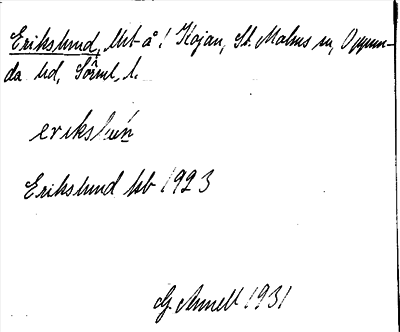 Erikslund, lht å ! Kojan, St. Malms sn, Oppun-
da hd, Sörml. l.
erikslun
Erikslund kb 1923
G. Annell 1931